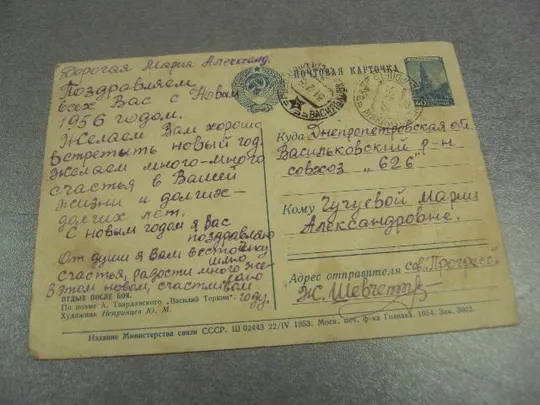 Дорогая Мария Александ.
Поздравляем
всех Вас с Новым
1956 годом.
Желаем Вам хорошо
встретить новый год
желаем много-много
счастья в Вашей
жизни и долгих-
долгих лет.
С новым годом я Вас
поздравляю
От души я Вам весточку
шлю
Счастья, радости много же-
лаю
В этом новом, счастливом
году.
ОТДЫХ ПОСЛЕ БОЯ.
По поэме А. Твардовского „Василий Теркин".
Художник Непринцев Ю. М.
ПОЧТОВАЯ КАРТОЧКА
40
Куда Днепропетровская об.
Васильковский р-н
совхоз „626"
Кому Чугуевой Марии
Александровне.
Адрес отправителя
Ж. Шевченко
Издание Министерства связи СССР. Ш 02443 22/IV 1953. Моск. печ. ф-ка Гознака. 1954. Зак. 3002.